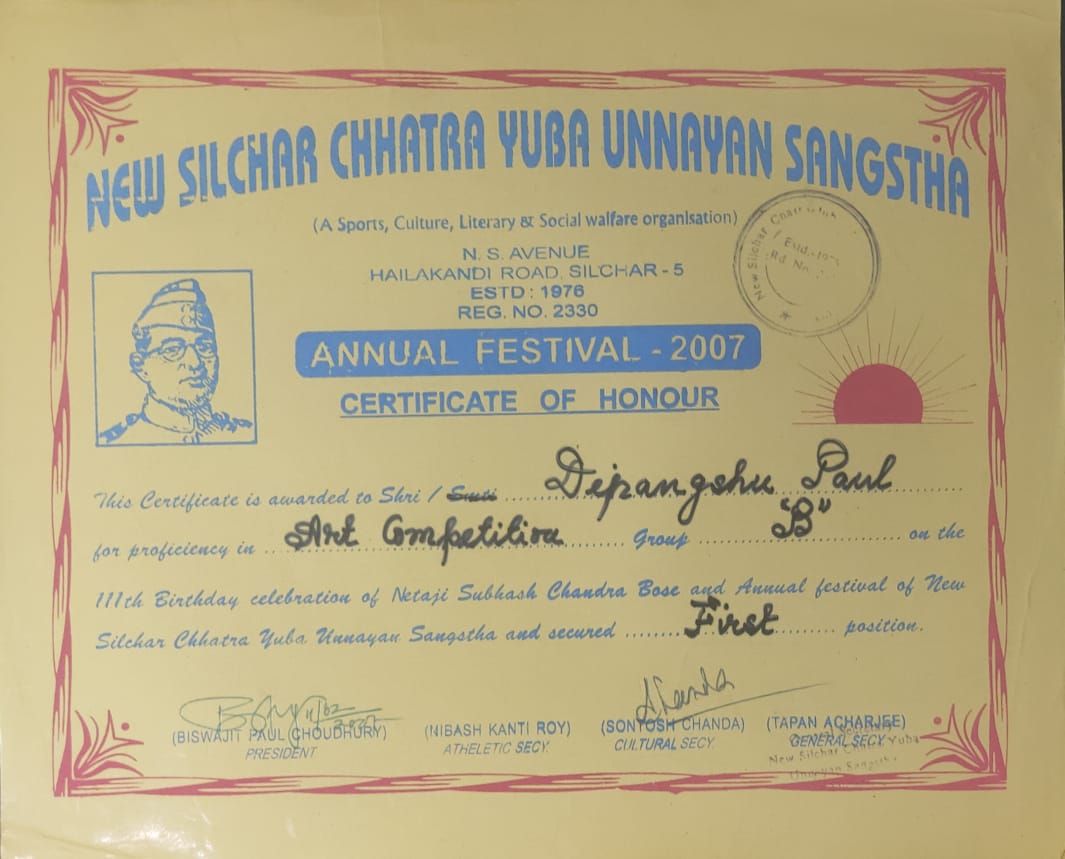 NEW SILCHAR CHHATRA YUBA UNNAYAN SANGSTHA
(A Sports, Culture, Literary & Social walfare organlsation)
N. S. AVENUE
HAILAKANDI ROAD, SILCHAR - 5
ESTD : 1976
REG. NO. 2330
New Silchar
Estd.
Rd. No.
ANNUAL FESTIVAL - 2007
CERTIFICATE OF HONOUR
This Certificate is awarded to Shri / Smti ............ Dipangshu Paul ............
for proficiency in ... Art Competition ......... Group ............ "B" ............ on the
111th Birthday celebration of Netaji Subhash Chandra Bose and Annual festival of New
Silchar Chhatra Yuba Unnayan Sangstha and secured ........ First ......... position.
(BISWAJIT PAUL CHOUDHURY) (NIBASH KANTI ROY) (SONTOSH CHANDA) (TAPAN ACHARJEE)
PRESIDENT ATHELETIC SECY. CULTURAL SECY. GENERAL SECY.
New Silchar Yuba